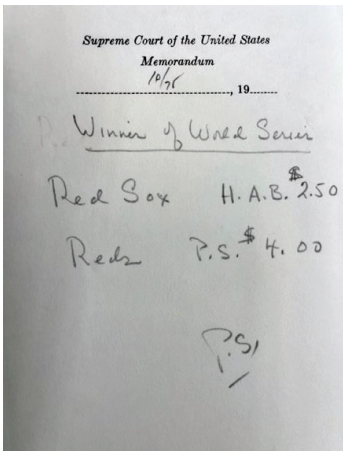 Supreme Court of the United States
Memorandum
10/75
............................................., 19........
Winner of World Series
Red Sox H.A.B. $2.50
Reds P.S. $4.00
P.S.